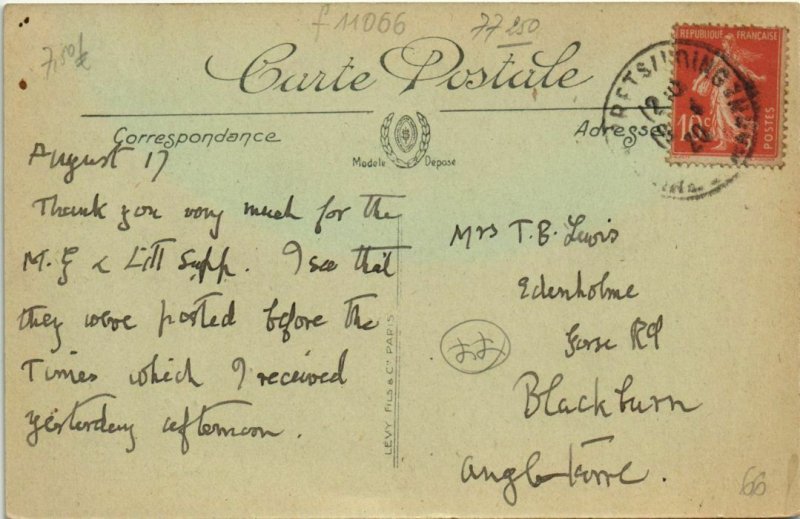 f 11066
77 250
7,50f
Carte Postale
Correspondance
Adresse
Modèle Déposé
REPUBLIQUE FRANÇAISE
10c
POSTES
August 17
Thank you very much for the
M.G & Litt Supp. I see that
they were posted before the
Times which I received
yesterday afternoon.
LEVY FILS & Cie PARIS
Mrs T.B. Lewis
Edenholme
Gorse Rd
Blackburn
Angleterre.
66